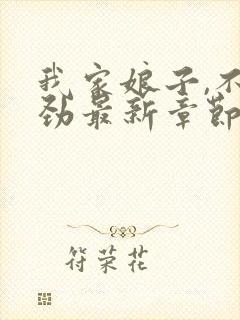 我家娘子,不
劲最新章節
符荣花